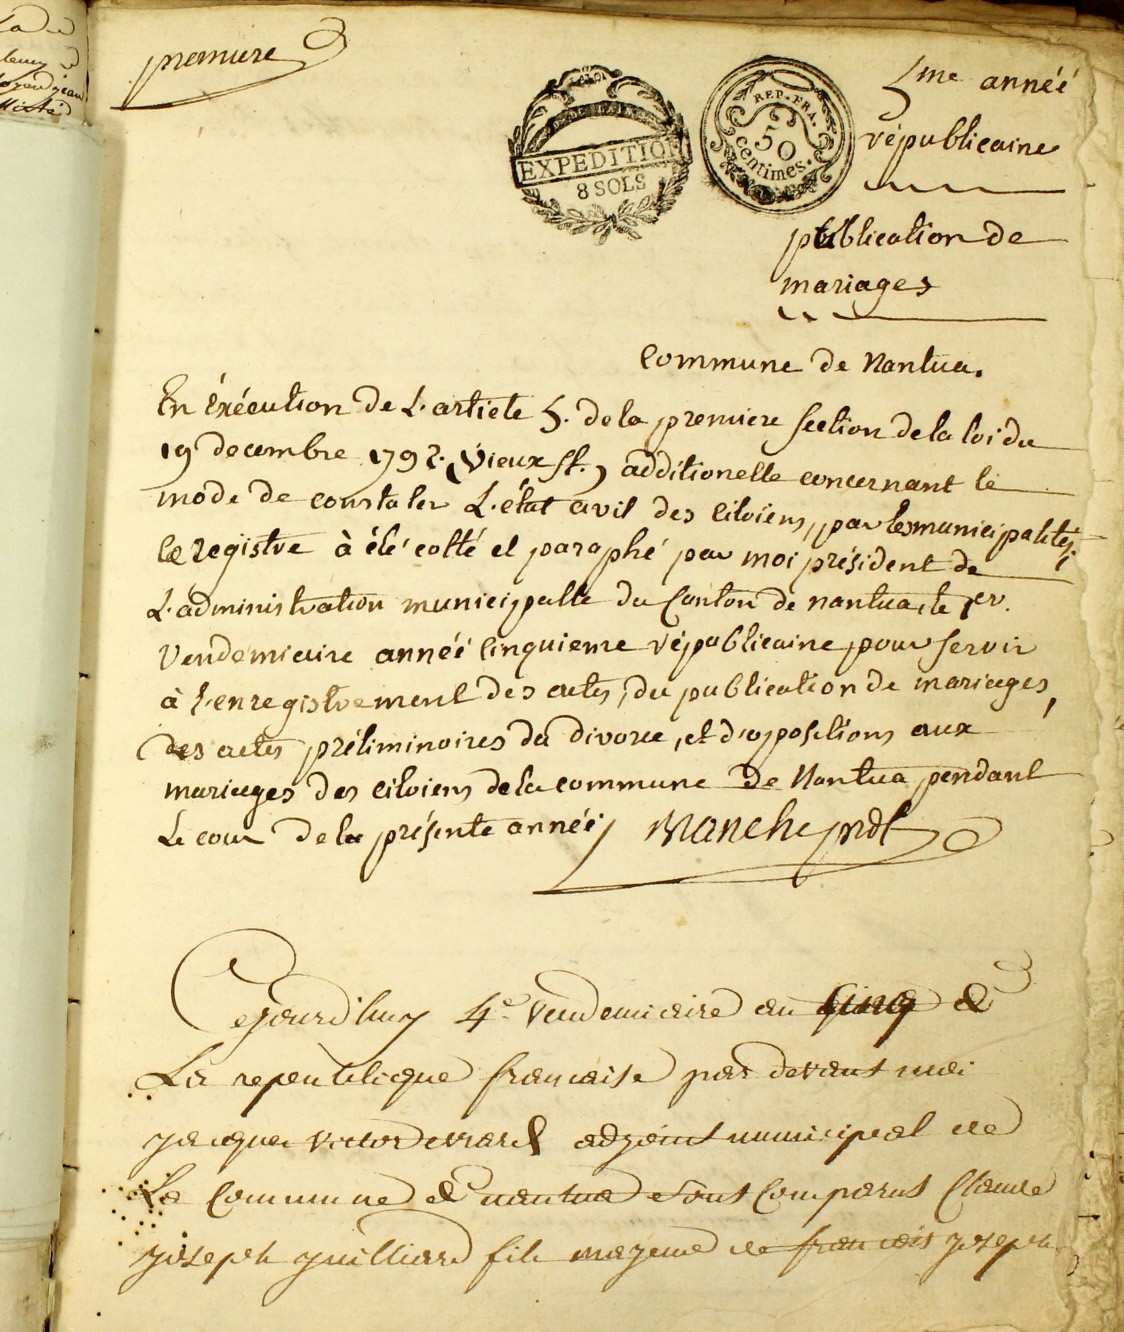 premiere
5me annéé
républicaine
publication de
mariages
EXPEDITION
8 SOLS
REP. FRA.
50
centimes.
Commune de Nantua.
En éxécution de L'article 5. de la premiere section de la loi du
19 decembre 1792. (vieux st.) additionelle concernant le
mode de constater L'état civil des citoiens, par les municipalités;
le registre à été cotté et paraphé par moi président de
L'administration municipalle du Canton de nantua, le 1er.
Vendemiaire annéé cinquieme républicaine, pour servir
à l'enregistrement des actes, du publication de mariages,
des actes préliminoires du divorce, et d'opositions aux
mariages des citoiens de la commune de Nantua pendant
Le cour de la présente annéé, Manche pndt
Cejourdhuy 4e. Vendemiaire an cinq de
La republicque francaise par devant moi
jacque victor adjoint municipal de
La Commune de nantua sont Comparut Claude
joseph juilliard fils majeur de francois joseph